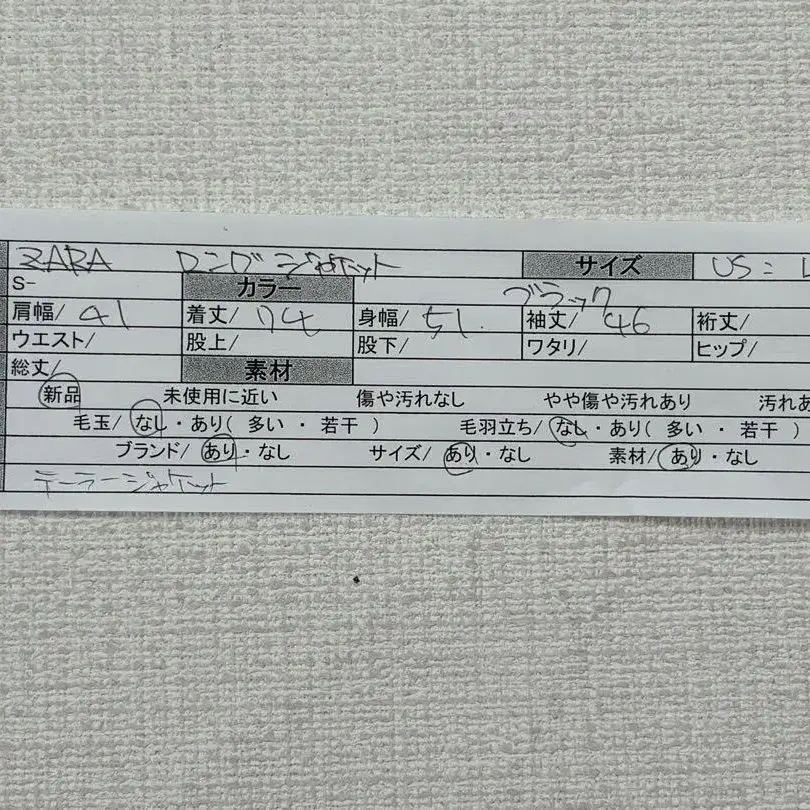 ZARA ロングジャケット サイズ US =
S- カラー ブラック
肩幅/ 41 着丈/ 74 身幅/ 51. 袖丈/ 46 裄丈/
ウエスト/ 股上/ 股下/ ワタリ/ ヒップ/
総丈/ 素材
新品 未使用に近い 傷や汚れなし やや傷や汚れあり 汚れあ
毛玉/ なし・あり( 多い ・ 若干 ) 毛羽立ち/ なし・あり( 多い ・ 若干 )
ブランド/ あり・なし サイズ/ あり・なし 素材/ あり・なし
テーラージャケット